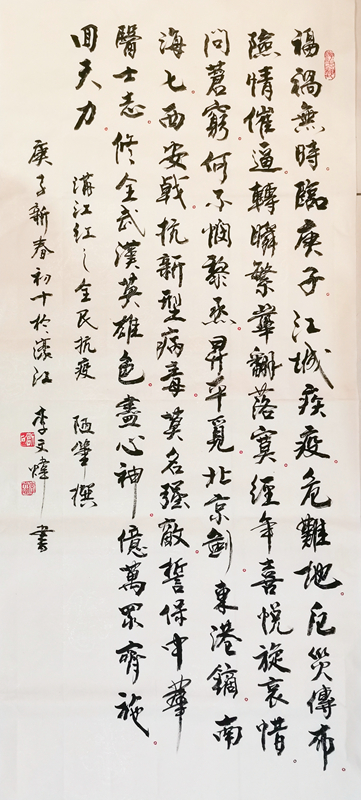 福禍無時臨庚子江城疾疫危難地厄災傳布
險情催逼轉瞬繁華翻落寞經年喜悅旋哀惜
問蒼窮何不憫黎烝昇平覓北京劍東港鏑南
海匕西安戟抗新型病毒莫名强敵誓保中華
醫士志修全武漢英雄色盡心神億萬眾齊施
回天力
滿江紅之全民抗疫 陋筆撰
庚子新春初十於濠江 李文煒 書